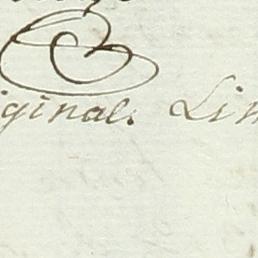 iginal. Lim